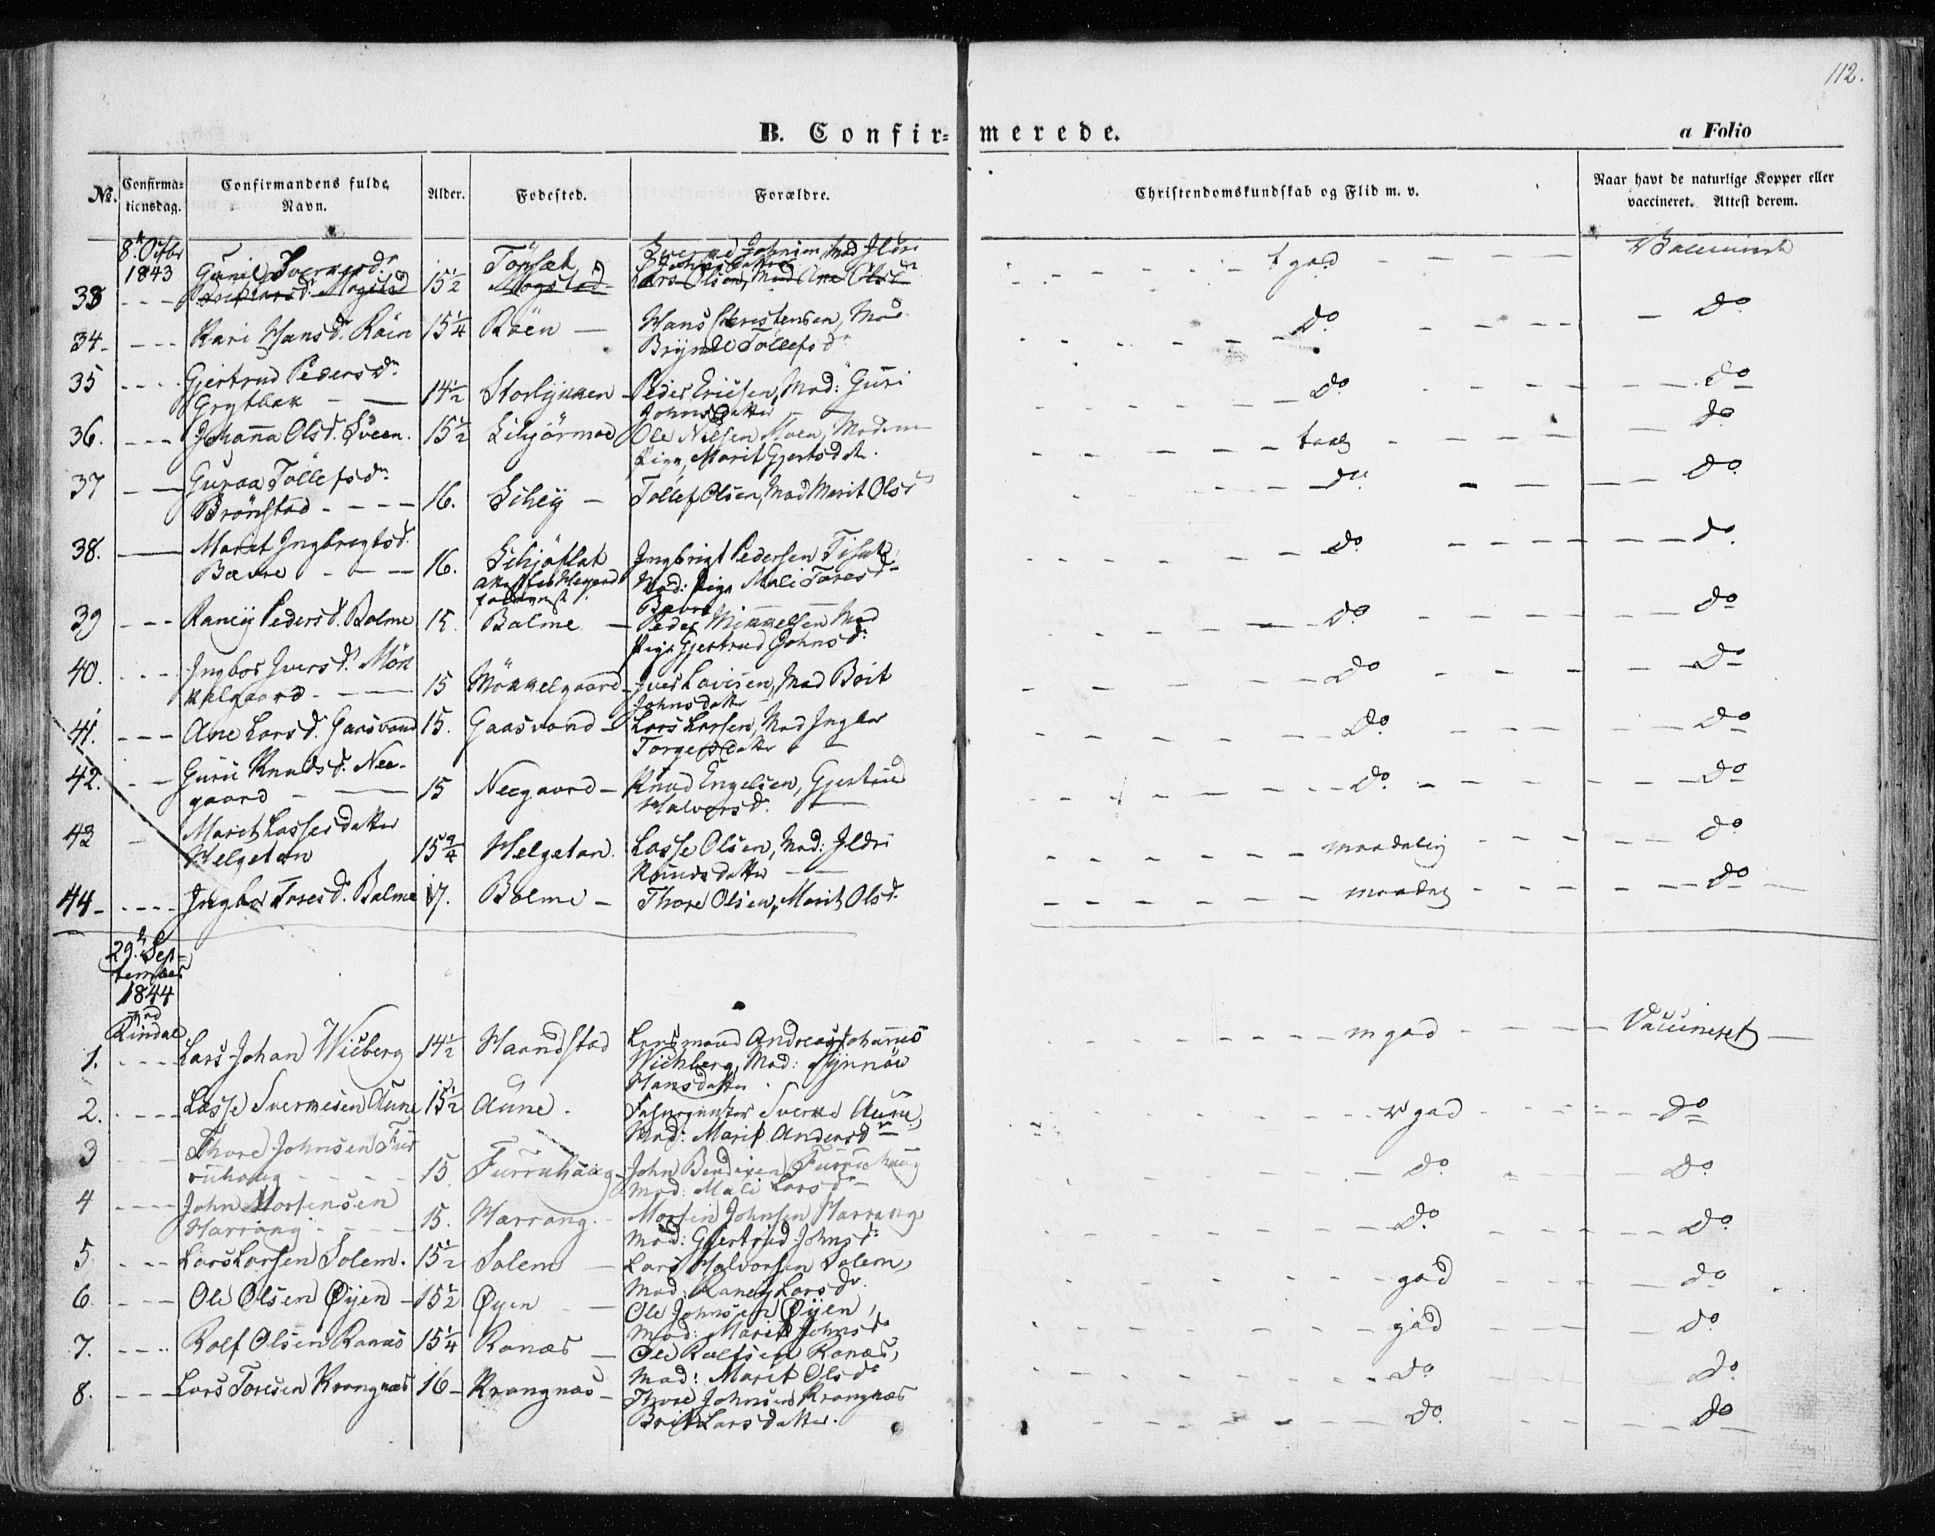 112.
B. Confir- merede.
a Folio
No. Confirma-tionsdag. Confirmandens fulde Navn. Alder. Fødested. Forældre. Christendomskundskab og Flid m. v. Naar havt de naturlige Kopper eller vaccineret. Attest derom.
8de Octbr
1843 Guril Sversd. Tørsæt
33 - - - 15½ Mogstad Lars Olsen, Mod Ane Olsd tgod
34. - - - Kari Hansd. Röen 15¼ Röen — Hans Christensen, Mod
Bryndl Tollefsd do do
35 - - - Gjertrud Pedersdr
Grytbak - — 14½ Storlykken — Peder Ericsen, Mod: Guri
Johnsdatter do do
36. - - - Johanna Olsd. Sveen. 15½ Ole Nilsen Moen, Moderen
Pige, Marit Gjertsdatr. taal do
37 - — Guroa Tollefsdr
Brönstad - - - - 16. Tollef Olsen, Mod Marit Olsd do do
38. — Marit Ingbrigtsd.
Bævre - - - 16. Ingbrigt Pedersen
Mod: Pige Mali Toresdr
Bævre do do
39 - - - Raney Pedersd. Bolme 15. Bolme — Peder Mikkelsen Mod
Pige Gjertrud Johnsdr do do
40. - - - Ingbor Iversd. Mök
kelgaard - — 15 Mökkelgaard — Iver Lovisen, Mod Brit
Johnsdatter do do
41. - - - Ane Larsd. Gaasvand 15. Gaasvand — Lars Larsen, Mod Ingbor
Torgersdatter — do do
42. - - Guru Knudsd. Nee-
gaard - — 15 Neegaard — Knud Engelsen, Gjertrud
Halvorsd. — do do
43 - Marit Lassesdatter
Helgetun 15¾ Helgetun. Lasse Olsen, Mod: Ildri
Knudsdatter — maadelig do
44 - - - - Ingbor Toresd. Bolme 17. Bolme — Thore Olsen, Marit Olsd. maadeg do
29de Sep-
tember
1844
ved
Rindal
1. - - - Lars Johan Wicberg 14½ Haandstad Lensmand Andreas Johannes
Wichberg, Mod: Synnöv
Hansdatter mgod Vaccineret —
2. - - - Lasse Sverresen Aune 15½ Aune. Sverre Aune,
Mod: Marit Andersdr god do
3 - - Thore Johnsen Fur
ruhaug - - - - 15. Furruhaug — John Bendixen Furruhaug
Mod: Mali Larsdr do do
4 - - - John Mortensen
Harrang - - - 15. Harrang. - Morten Johnsen Harrang
Mod: Gjertrud Johnsd. do do
5. - - - Lars Larsen Solem. 15½ Solem — Lars Halvorsen Solem,
Mod: Raney Larsdr. god do
6. - - - Ole Olsen Øyen — 15½ Øyen — Ole Johnsen Øyen,
Mod: Marit Johnsdr god do
7. - - - Rolf Olsen Ranæs 15¼ Ranæs — Ole Rolfsen Ranæs,
Mod: Marit Olsdr do do
8. - - - Lars Toresen Krangnæs 16 — Krangnæs — Thore Johnsen Krangnæs
Brit Larsdatter. do do